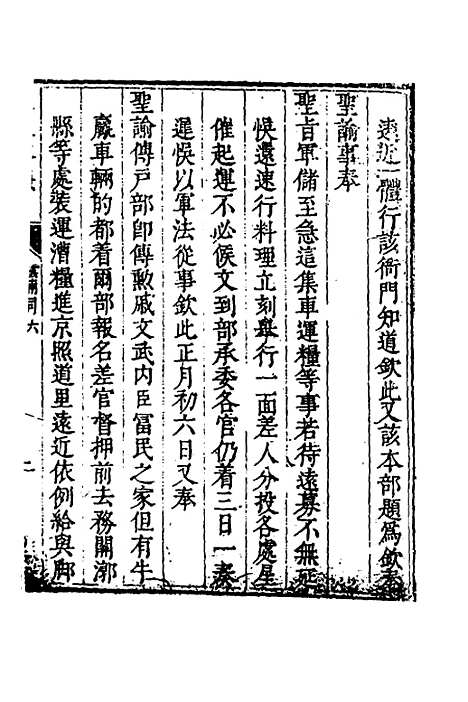 遠近一體行該衙門知道欽此又該本部題爲欽奉
聖諭事奉
聖旨軍儲至急這集車運糧等事若待遠募不無延
悞還速行料理立刻舉行一面差人分投各處星
催起運不必候文到部承委各官仍着三日一奏
遲悞以軍法從事欽此正月初六日又奉
聖諭傳戶部卽傳勲戚文武内臣冨民之家但有牛
驘車輛的都着爾部報名差官督押前去務關漷
縣等處裝運漕糧進京照道里遠近依例給與脚
司六
二